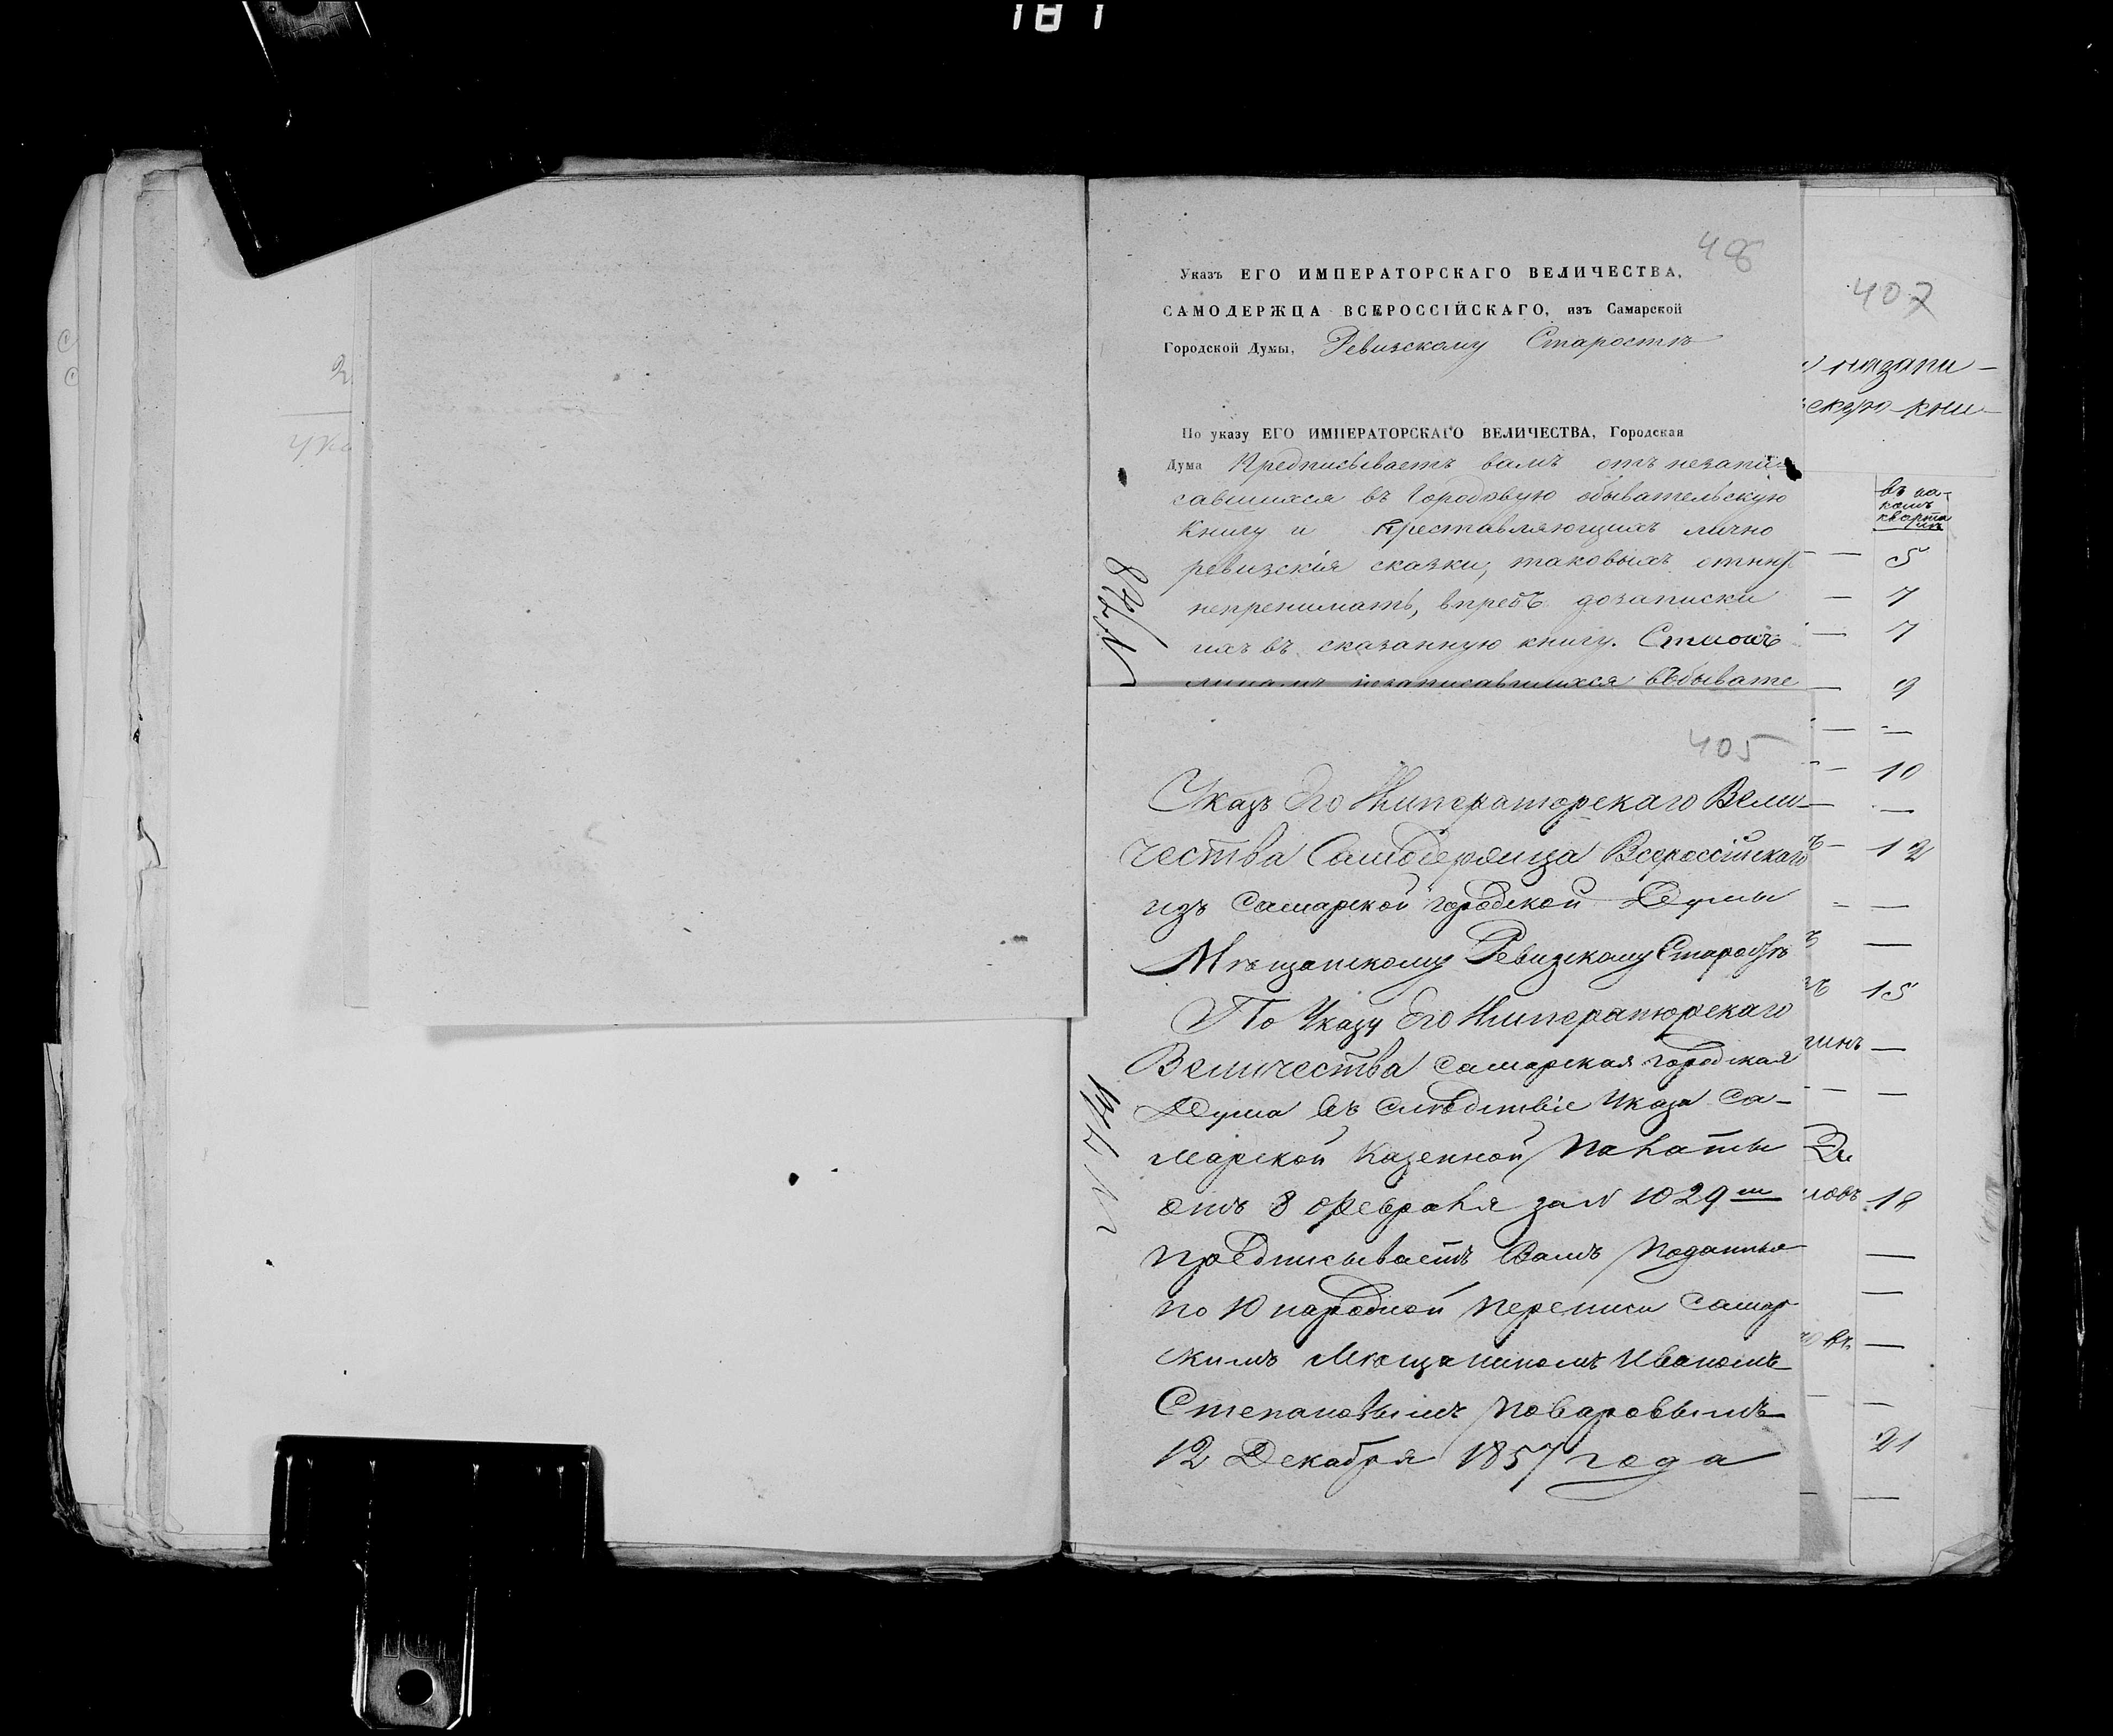 187
406
Указъ ЕГО ИМПЕРАТОРСКАГО ВЕЛИЧЕСТВА,
САМОДЕРЖЦА ВСЕРОССІЙСКАГО, изъ Самарской
Городской Думы, Ревизскому Старостѣ
По указу ЕГО ИМПЕРАТОРСКАГО ВЕЛИЧЕСТВА, Городская
Дума Предписываетъ вамъ отъ незапи-
савшихся въ Городовую обывательскую
Книгу и преставляющихъ лично
ревизскія сказки, таковыхъ отнюдь
непренимать, впредь дозаписки
ихъ въ сказанную книгу.
незаписавшихся
405
Указъ Его Императорскаго Вели-
чества Самодержца Всероссійскаго
изъ Самарской городской Думы
Мѣщанскому Ревизскому Старостѣ
По Указу Его Императорскаго
Величества Самарская городская
Дума въ Слѣдствіе Указа Са-
марской Казенной Палаты
отъ 8 Февраля за № 1029 м
предписываетъ Вамъ поданныя
по 10 народной переписи Самар
скимъ Мѣщаниномъ Иваномъ
Степановымъ Поваровымъ
12 Декабря 1857 года
407
кни-
въ ка-
комъ
кварта
лѣ
5
7
7
9
10
12
15
18
21